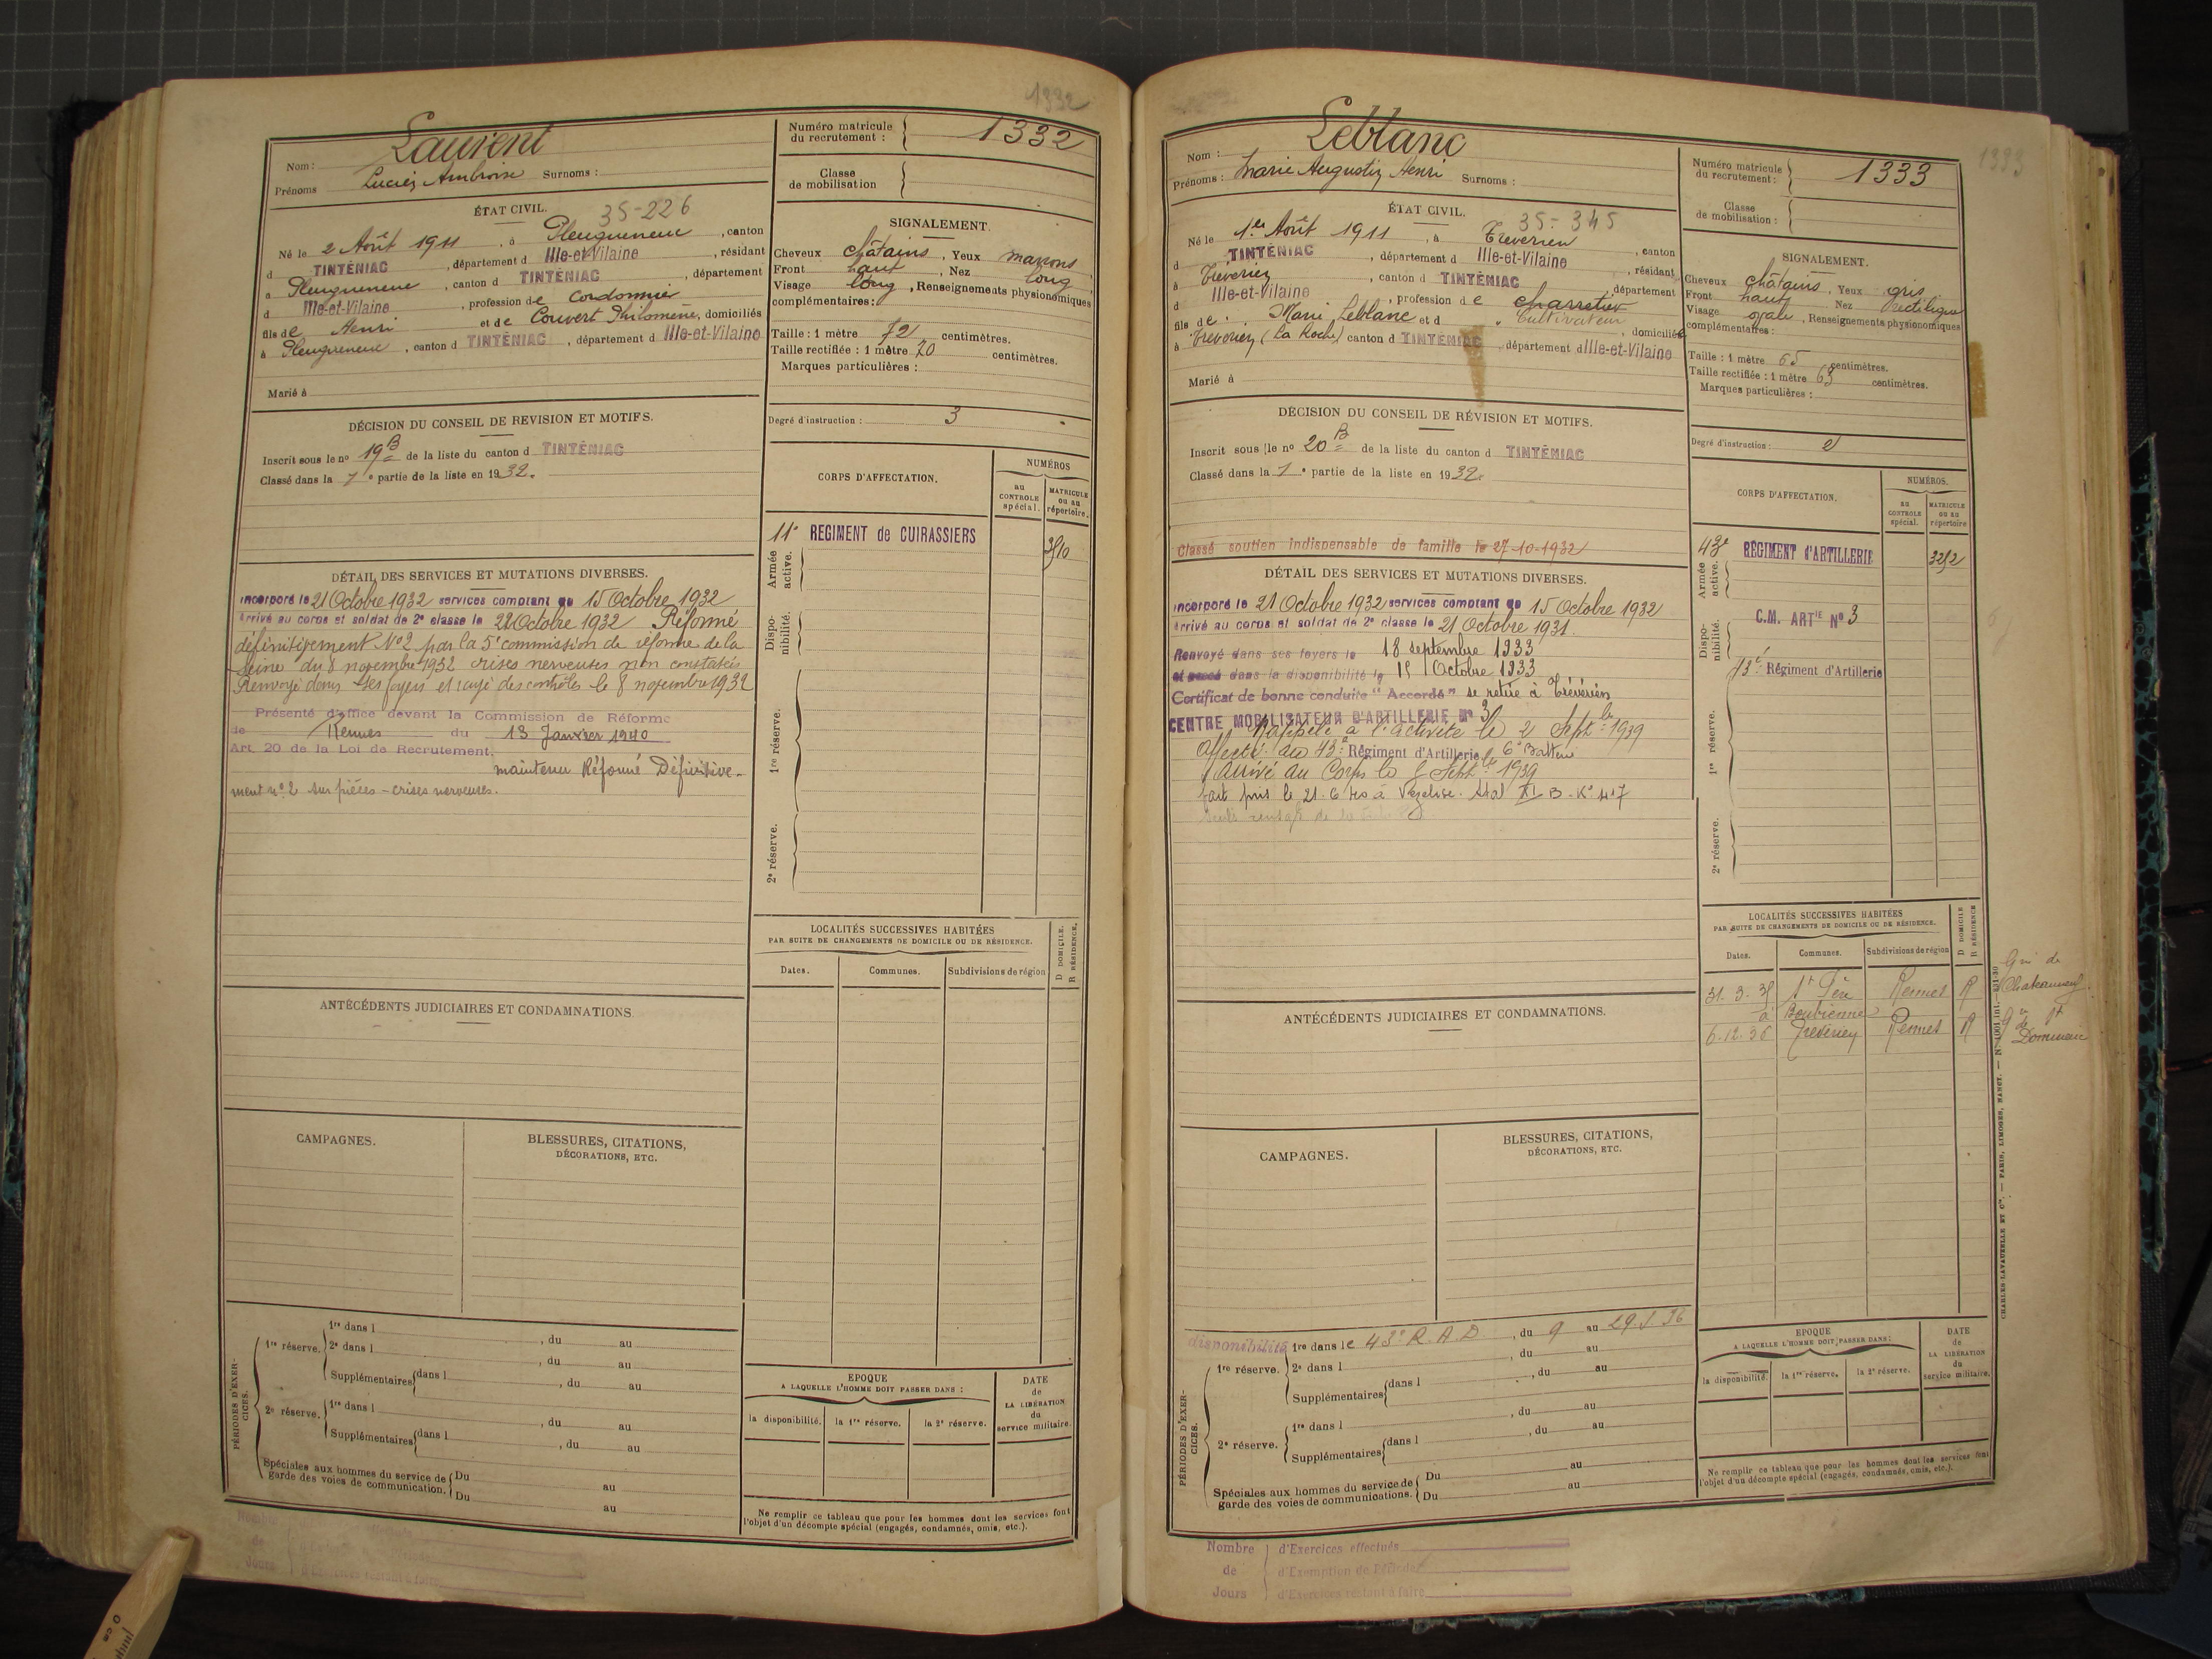 1332
Nom : Laurent
Prénoms Lucien Ambroise Surnoms :
Numéro matricule du recrutement : 1332
Classe de mobilisation
ÉTAT CIVIL. 35-226
Né le 2 Août 1911, à Pleugueneuc, canton
d TINTÉNIAC, département d Ille-et-Vilaine, résidant
à Pleugueneuc, canton d TINTÉNIAC, département
d Ille-et-Vilaine, profession de Cordonnier
fils de Henri et de Couvert Philomène, domiciliés
à Pleugueneuc, canton d TINTÉNIAC, département d Ille-et-Vilaine
Marié à
SIGNALEMENT.
Cheveux châtains, Yeux marrons
Front haut, Nez long
Visage long, Renseignements physionomiques
complémentaires :
Taille : 1 mètre 72 centimètres.
Taille rectifiée : 1 mètre 70 centimètres.
Marques particulières :
Degré d'instruction : 3
DÉCISION DU CONSEIL DE REVISION ET MOTIFS.
Inscrit sous le nº 19 B de la liste du canton d TINTÉNIAC
Classé dans la 1e partie de la liste en 1932.
CORPS D'AFFECTATION.
NUMÉROS
au CONTROLE spécial.
MATRICULE ou au répertoire.
Armée active.
11e REGIMENT de CUIRASSIERS
Dispo-nibilité.
1re réserve.
2e réserve.
DÉTAIL DES SERVICES ET MUTATIONS DIVERSES.
Incorporé le 21 Octobre 1932 services comptant du 15 Octobre 1932
Arrivé au corps et soldat de 2e classe le 22 Octobre 1932 Réformé
définitivement Nº2 par la 5e commission de réforme de la
Seine du 8 novembre 1932 crises nerveuses non constatées
Renvoyé dans ses foyers et rayé des contrôles le 8 novembre 1932
Présenté d'office devant la Commission de Réforme
de Rennes du 13 Janvier 1940
Art. 20 de la Loi de Recrutement.
maintenu Réformé Définitive-
ment nº 2 sur pièces - crises nerveuses.
LOCALITÉS SUCCESSIVES HABITÉES
PAR SUITE DE CHANGEMENTS DE DOMICILE OU DE RÉSIDENCE.
D DOMICILE.
R RÉSIDENCE.
Dates. Communes. Subdivisions de région
ANTÉCÉDENTS JUDICIAIRES ET CONDAMNATIONS
CAMPAGNES.
BLESSURES, CITATIONS,
DÉCORATIONS, ETC.
PÉRIODES D'EXER-CICES.
1re réserve.
1re dans l , du au
2e dans l , du au
Supplémentaires dans l , du au
2e réserve.
1re dans l , du au
Supplémentaires dans l , du au
Spéciales aux hommes du service de garde des voies de communication.
Du au
Du au
EPOQUE
A LAQUELLE L'HOMME DOIT PASSER DANS :
la disponibilité. la 1re réserve. la 2e réserve.
DATE
de
LA LIBÉRATION
du
service militaire.
Ne remplir ce tableau que pour les hommes dont les services font
l'objet d'un décompte spécial (engagés, condamnés, omis, etc.).
1333
Nom : Leblanc
Prénoms : Marie Augustin Henri Surnoms :
Numéro matricule du recrutement : 1333
Classe de mobilisation :
ÉTAT CIVIL. 35-345
Né le 1er Août 1911, à Treverien, canton
d TINTÉNIAC, département d Ille-et-Vilaine, résidant
à Treverien, canton d TINTÉNIAC, département
d Ille-et-Vilaine, profession de charretier
Cultivateur
fils de Marie Leblanc et d , domiciliés
à Treverien (la Roche) canton d TINTÉNIAC, département d Ille-et-Vilaine
Marié à
SIGNALEMENT.
Cheveux châtains, Yeux gris
Front haut, Nez rectiligne
Visage ovale, Renseignements physionomiques
complémentaires :
Taille : 1 mètre 65 centimètres.
Taille rectifiée : 1 mètre 63 centimètres.
Marques particulières :
Degré d'instruction : 2
DÉCISION DU CONSEIL DE RÉVISION ET MOTIFS.
Inscrit sous le nº 20 B de la liste du canton d TINTÉNIAC
Classé dans la 1e partie de la liste en 1932.
Classé soutien indispensable de famille le 27-10-1932
CORPS D'AFFECTATION.
NUMÉROS.
au CONTROLE spécial.
MATRICULE ou au répertoire
Armée active.
43e RÉGIMENT d'ARTILLERIE
Dispo-nibilité.
C.M. ARTIE Nº 3
43e Régiment d'Artillerie
1re réserve.
2e réserve.
DÉTAIL DES SERVICES ET MUTATIONS DIVERSES.
Incorporé le 21 Octobre 1932 services comptant du 15 Octobre 1932
Arrivé au corps et soldat de 2e classe le 21 Octobre 1931.
Renvoyé dans ses foyers le 18 septembre 1933
et passé dans la disponibilité le 15 Octobre 1933
Certificat de bonne conduite "Accordé" se retire à Trévérien
CENTRE MOBILISATEUR D'ARTILLERIE Nº 3
Rappelé à l'activité le 2 Septbre 1939
Affecté au 43e Régiment d'Artillerie 6e Batterie
Arrivé au Corps le 8 Septbre 1939
fait pris le 21.6.40 à Vézelise. Stal XI B - Kº 417
LOCALITÉS SUCCESSIVES HABITÉES
PAR SUITE DE CHANGEMENTS DE DOMICILE OU DE RÉSIDENCE.
D DOMICILE
R RÉSIDENCE
Dates. Communes. Subdivisions de région
31.3.35 St Père Rennes R Gie de Chateauneuf
6.12.36 Treverien Rennes R
ANTÉCÉDENTS JUDICIAIRES ET CONDAMNATIONS.
CAMPAGNES.
BLESSURES, CITATIONS,
DÉCORATIONS, ETC.
PÉRIODES D'EXER-CICES.
disponibilité 1re dans le 43e R.A.D, du 9 au 29.5.36
1re réserve.
2e dans l , du au
Supplémentaires dans l , du au
2e réserve.
1re dans l , du au
Supplémentaires dans l , du au
Spéciales aux hommes du service de garde des voies de communications.
Du au
Du au
EPOQUE
A LAQUELLE L'HOMME DOIT PASSER DANS :
la disponibilité. la 1re réserve. la 2e réserve.
DATE
de
LA LIBÉRATION
du
service militaire.
Ne remplir ce tableau que pour les hommes dont les services font
l'objet d'un décompte spécial (engagés, condamnés, omis, etc.).
CHARLES-LAVAUZELLE ET Cie. — PARIS, LIMOGES, NANCY.
Nombre de Jours
d'Exercices effectués
d'Exemption de Périodes
d'Exercices restant à faire